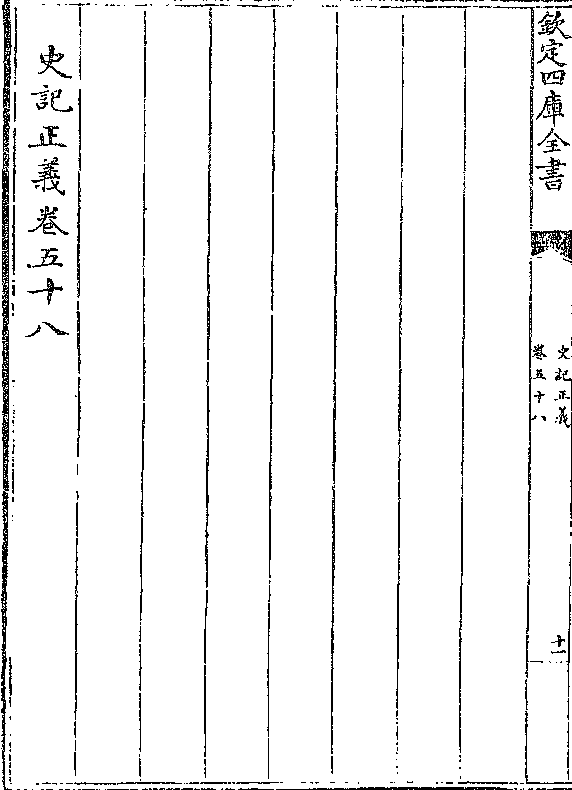 欽定四庫全書
史記正義
卷五十八
十一
史記正義卷五十八